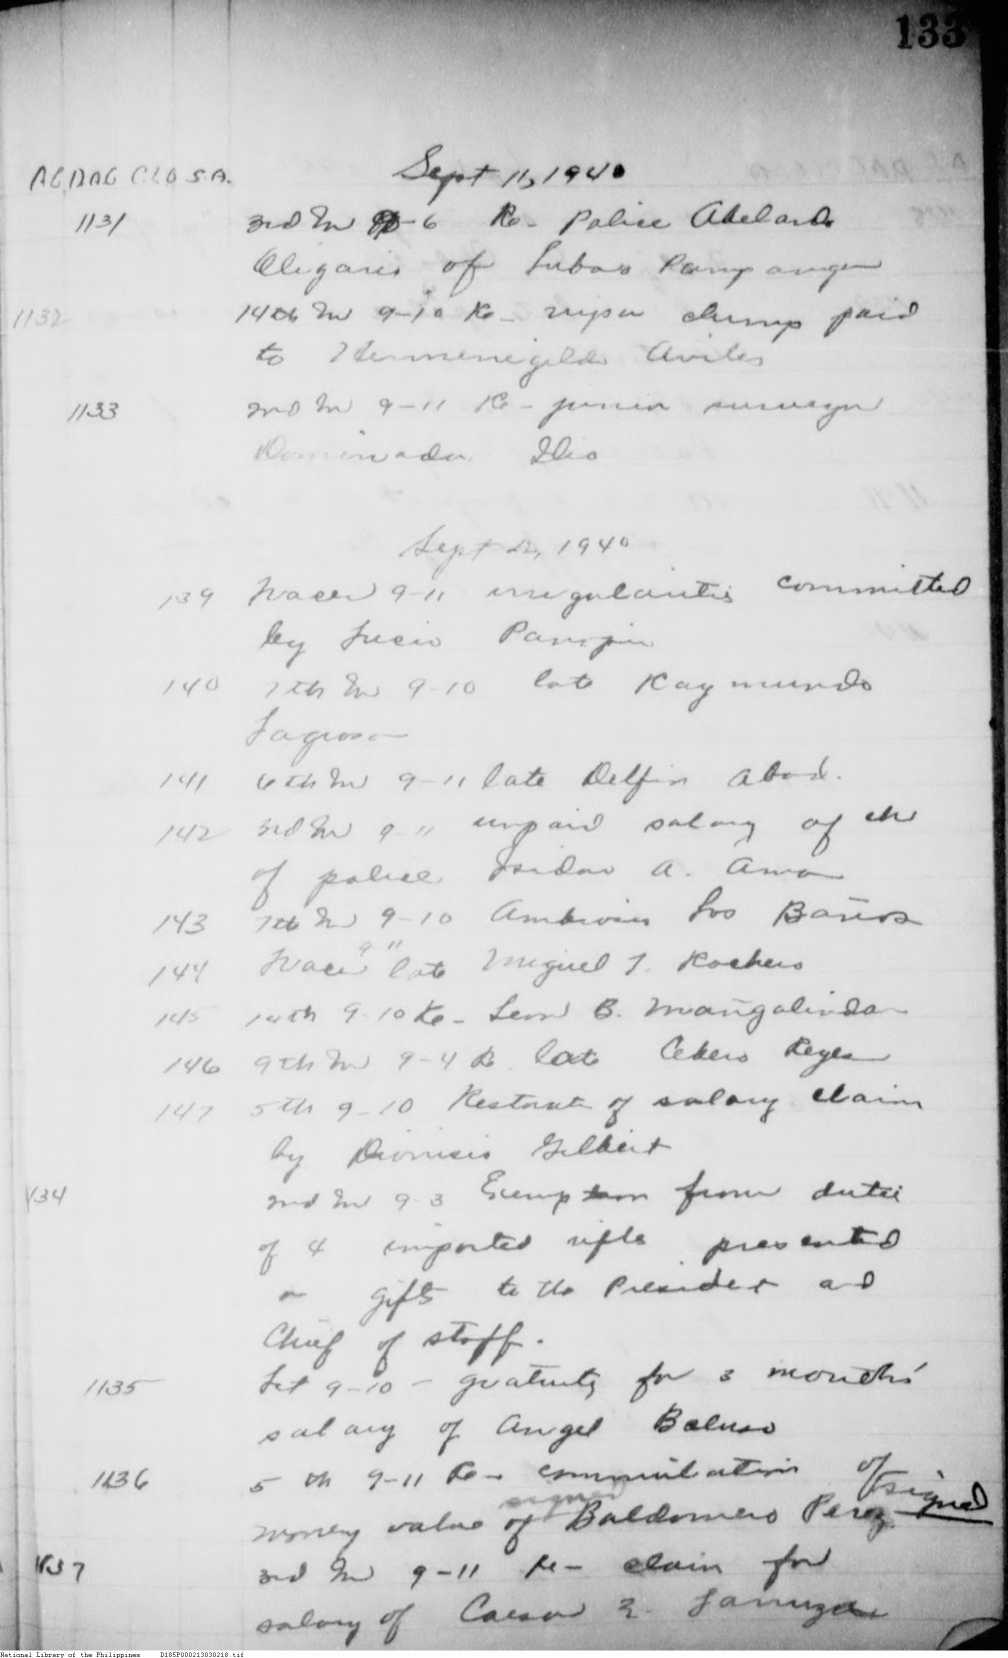 133
Sept 11, 1940
AG DAG CLO S.A.
1131 3rd In 9-6 Re- Police Abelardo
Oligario of Lubao Pampanga
1132 14th In 9-10 Re- nipa clump paid
to Hermenegildo Aviles
1133 2nd In 9-11 Re- junior surveyor
Ilio
Sept 12, 1940
139 9-11 irregularities committed
by Lucio
140 7th In 9-10 late Raymundo
Lagrosa
141 6th In 9-11 late Delfin Abad.
142 3rd In 9-11 unpaid salary of ch
of police Isidro A.
143 7th In 9-10 Los Baños
144 9-11 late Miguel T.
145 14th 9-10 Re- Leon B. Mangalindan
146 9th In 9-4 Re late Reyes
147 5th 9-10 of salary claim
by Dionisio Gilbert
1134 2nd In 9-3 Exemption from dutie
of 4 imported rifles presented
as gifts to the President and
Chief of staff.
1135 Let 9-10 - gratuity for 3 months'
salary of Angel
1136 5th 9-11 Re- commutation of
signed
money value of Baldomero Perez signed
1137 3rd In 9-11 Re- claim for
salary of Caesar Z.
National Library of the Philippines D185P000213030218.tif